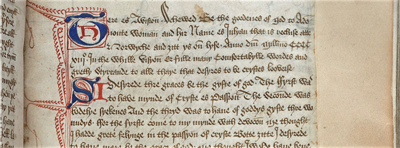 Here es a visioun schewed Be the goodenes of god to A de
uoute Woman and hir Name es Iulyan that is recluse atte
Norwyche and ȝitt ys on lyfe. Anno dni millmo CCCC
xiij In the whilke visyoun er fulle many Comfortabylle wordes and
gretly styrrande to alle thaye that desyres to be crystes looverse
I Desyrede thre graces be the gyfte of god The fyrst was
to have mynde of Cryste es Passioun The secounde was
bodelye syeknes And the thryd was to haue of goddys gyfte thre wo
undys ffor the fyrste come to my mynde with devocoun me thought
I hadde grete felynge in the passyoun of cryste Botte ȝitte I desyrede
to haue mare be the grace of god me thought I wolde haue bene